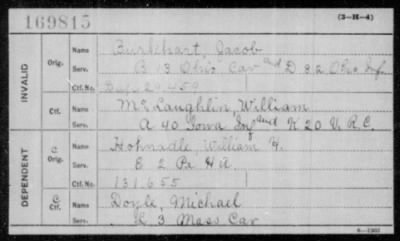 169815
(3-H-4)
INVALID
Orig.
Name Burkehart, Jacob
Serv. B 13 Ohio Cav and D 82 Ohio Inf.
Ctf. No. 29.459
Ctf.
Name McLaughlin, William
Serv. A 40 Iowa Inf and K 20 V.R.C.
DEPENDENT
C. Orig.
Name Hohnadle William H.
Serv. E 2 Pa H A
Ctf. No. 131.655
C. Ctf.
Name Doyle, Michael
Serv. 3 Mass Cav